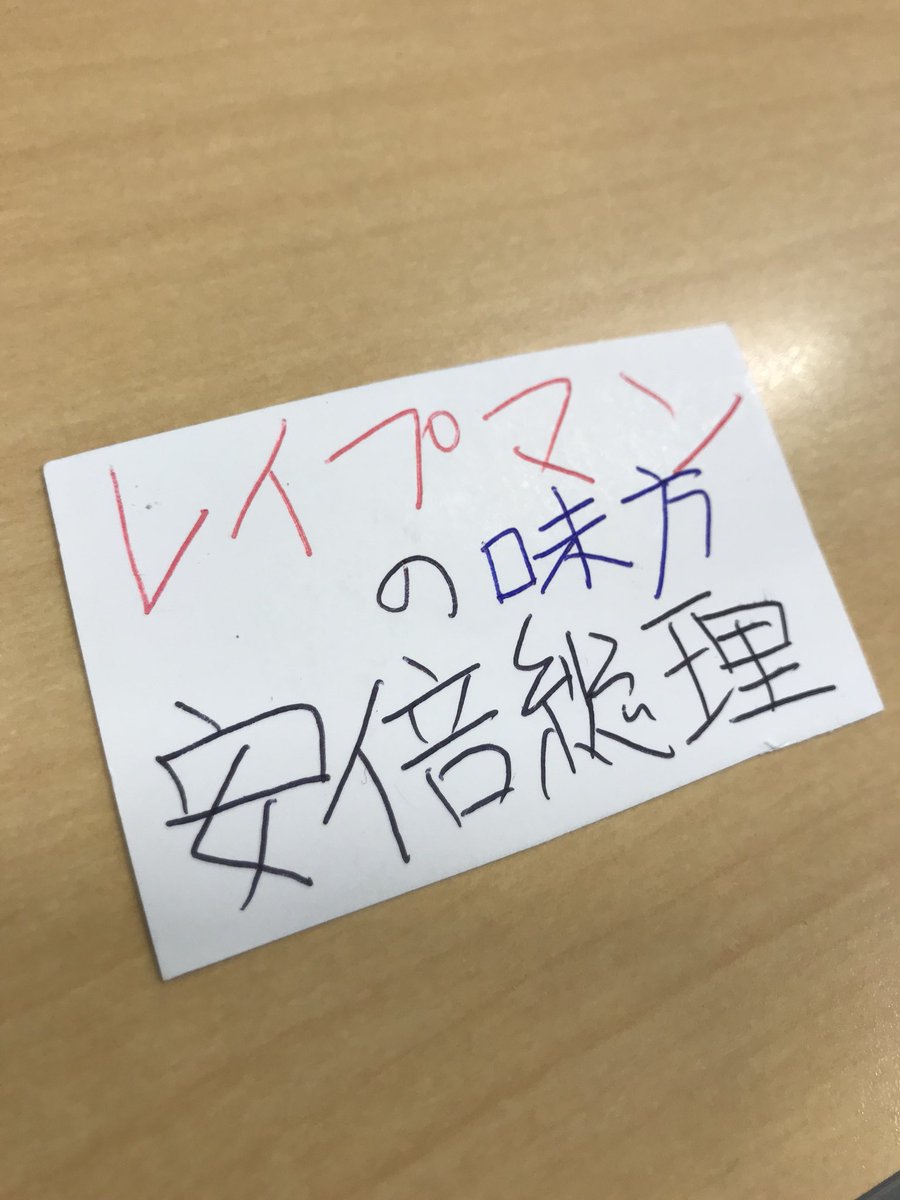 レイプマン
の味方
安倍総理